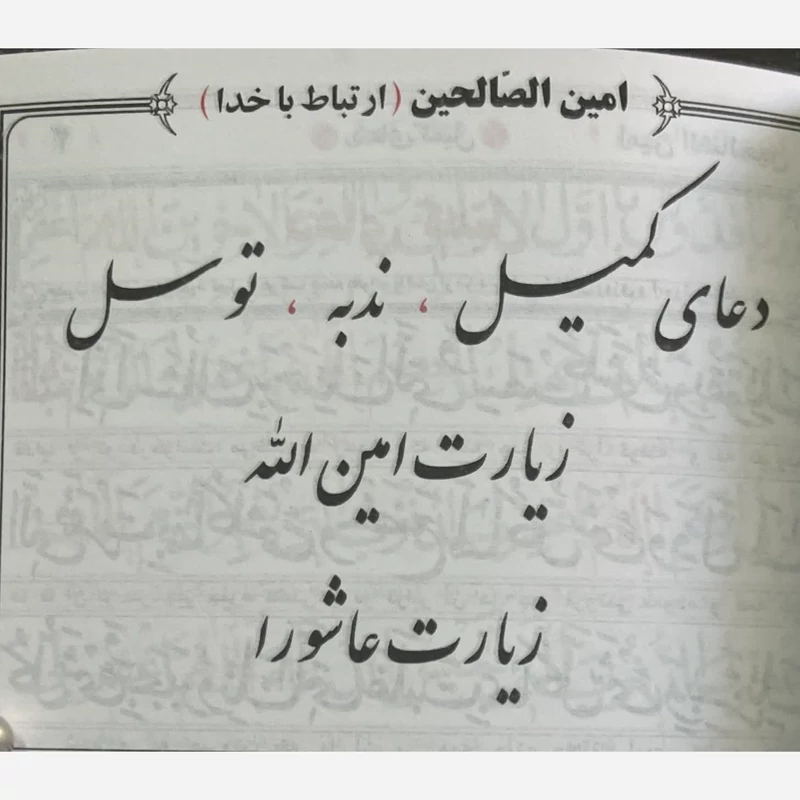 امین الصّالحین (ارتباط با خدا)
دعای کمیل ، ندبه ، توسل
زیارت امین الله
زیارت عاشورا